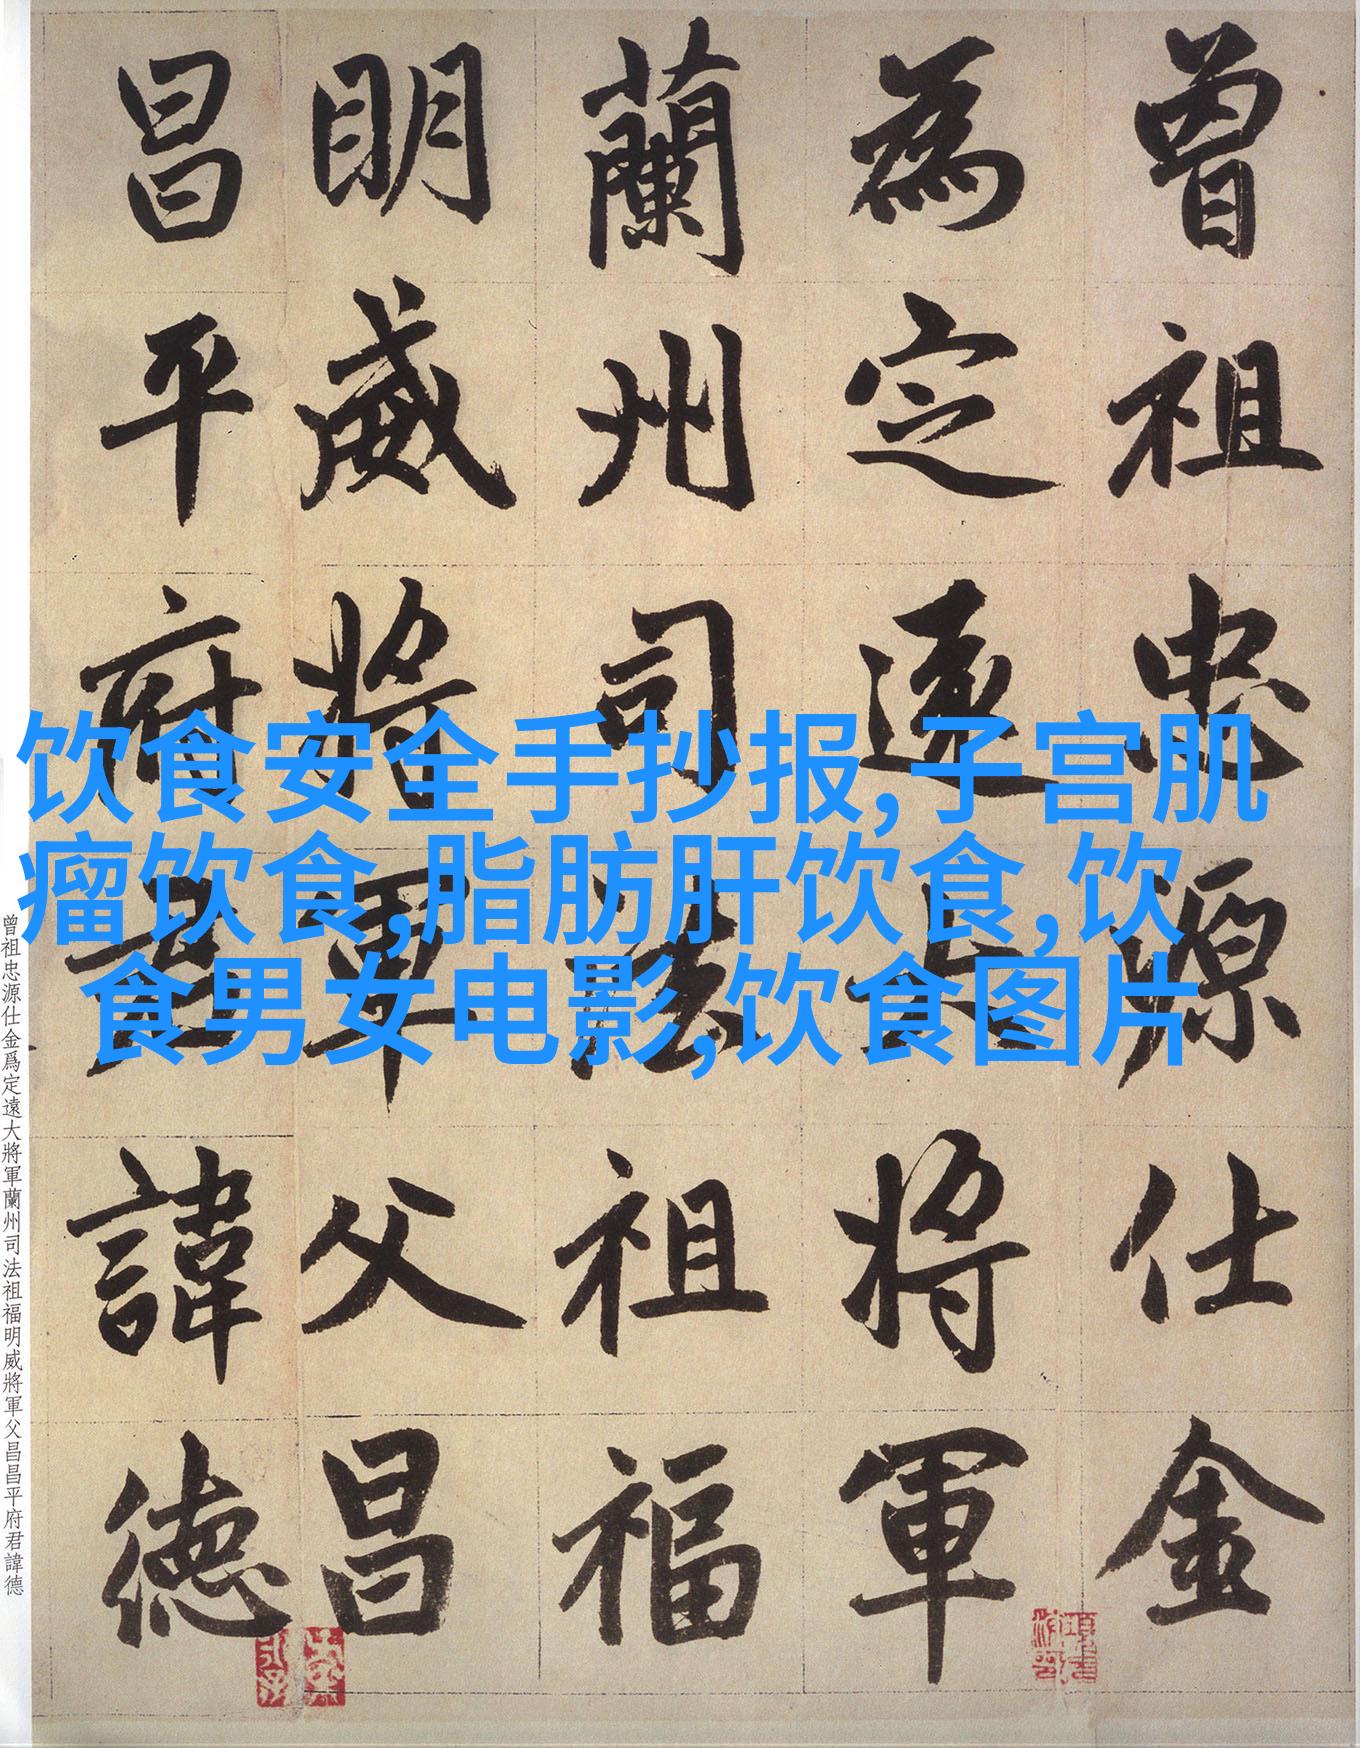 曾祖忠源仕金
為定遠大將軍
蘭州司法祖福
明威將軍父昌
昌平府君諱德
饮食安全手抄报,子宫肌
瘤饮食,脂肪肝饮食,饮
食男女电影,饮食图片
曾祖忠源仕金爲定遠大將軍蘭州司法祖福明威將軍父昌昌平府君諱德